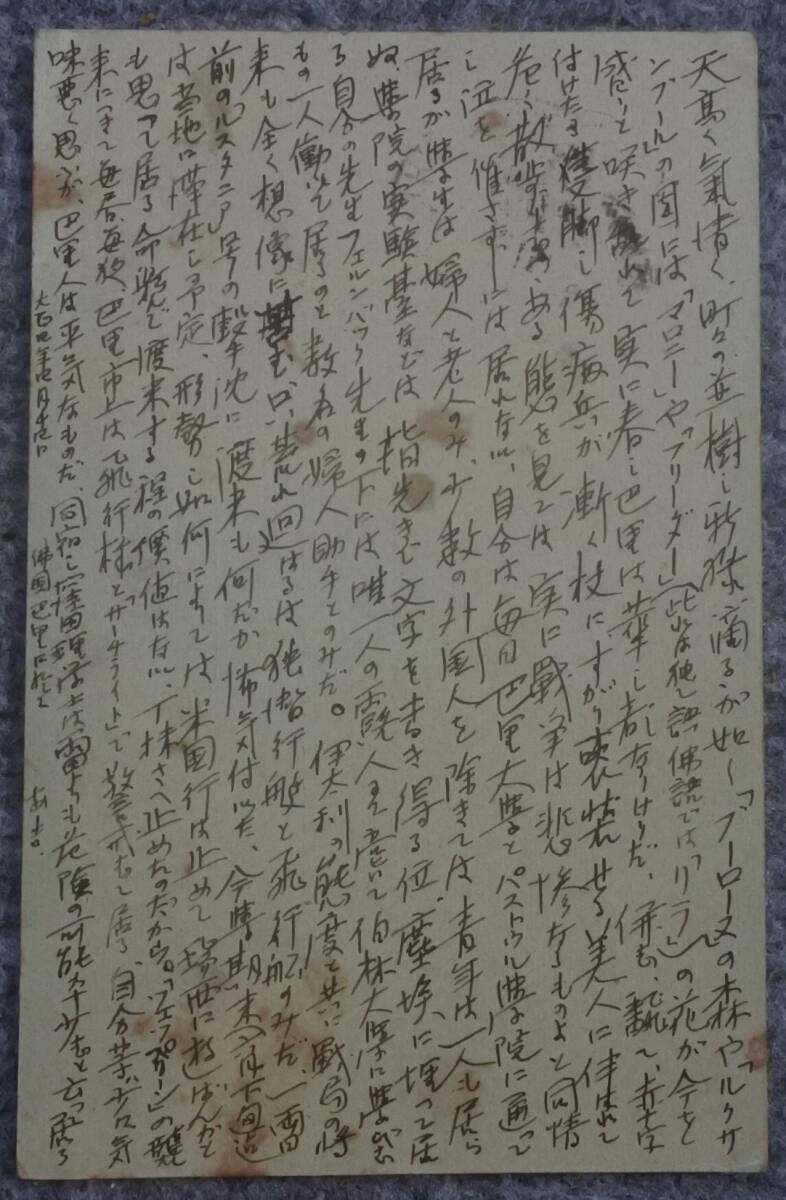 天高く氣清く、町々の並樹の新緑滴るが如く「ブーローヌ」の森や「ルクサ
ンブール」の園には「マロニー」や「フリーダー」(此れは独乙語、佛語では「リラ」)の花が今を
盛りと咲き乱れて実に春の巴里は華の都なりけりだ、併も、翻て、赤十字
付けたる隻脚の傷病兵が漸く杖にすがり喪装せる美人に伴はれて
危く散歩しつつある態を見ては実に戦争は悲惨なるものよと同情
の涙を催さずには居れない、自分は毎日巴里大学とパストゥル学院に通って
居るが学生は婦人と老人のみ、少数の外国人を除きては青年は一人も居ら
ぬ、学院の実験基などは指先きで文字を書き得る位、塵埃に埋って居
る自分の先生フェルンバック先生の下には唯一人の露人と伯林大学に
もの一人働いて居るのと数名の婦人助手とのみだ。伊太利の態度と共に戦局の将
来も全く想像に 只、荒れ廻はるは独潜行艇と飛行船のみだ、一両日
前の「ルスタニア」号の撃沈に渡米も何だか怖気付いた、今学期末六月下旬迄
は当地に滞在の予定、形勢の如何によっては米国行は止めて瑞西に遊ばんかと
も思って居る命懸で渡来する程の価値はない、丁抹さへ止めたのだから。「ツェッペリン」の襲
来につきて毎昼毎夜巴里市上は飛行機と「サーチライト」で警戒して居る、自分等少々気
味悪く思ふが、巴里人は平気なものだ、同宿の 理学士は雷よりも危険の可能率少しと云って居る
大正四年 月 日 佛国巴里に於て